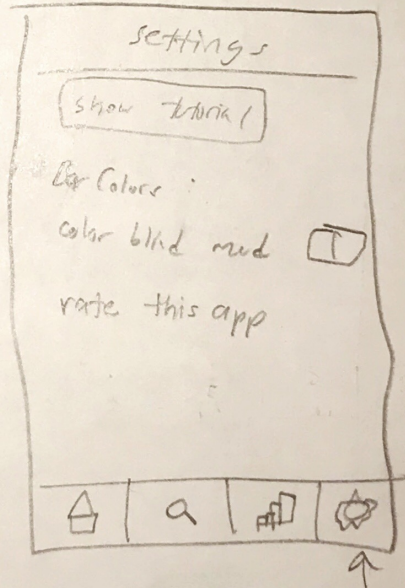 settings
show tutorial
Bar Colors :
color blind mod
rate this app